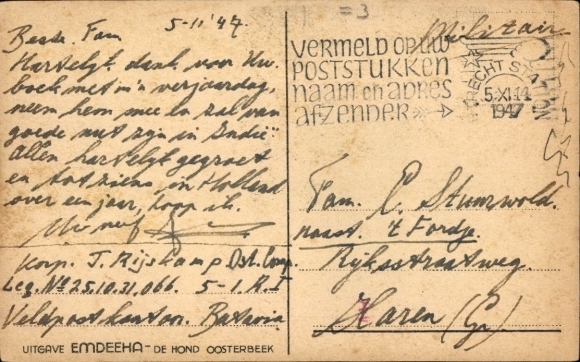 5-11'47.
Beste Fam
Hartelijk dank voor Uw
boek met m'n verjaardag,
neem hem mee en zal van
goede nut zijn in Indië.
Allen hartelijk gegroet
en tot ziens in Holland
over een jaar, hoop ik.
Uw neef
Korp. J. Rijskamp Ost. Comp.
Leg. No 25.10.31.066. 5-1.R.I
Veldpostkantoor Batavia
UITGAVE EMDEEHA - DE HOND OOSTERBEEK
=3
Militair
VERMELD OP UW
POSTSTUKKEN
NAAM en ADRES
AFZENDER
UTRECHT STATION
5.XI.14
1947
Fam. C. Stumwold.
naast 't Fordje
Rijksstraatweg.
Haren (Gr)